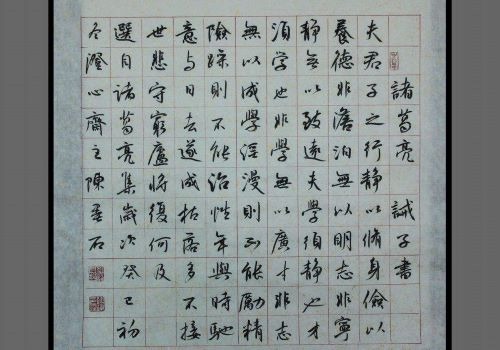 諸葛亮 誡子書
夫君子之行靜以脩身儉以
養德非澹泊無以明志非寧
靜無以致遠夫學須靜也才
須學也非學無以廣才非志
無以成學淫漫則不能勵精
險躁則不能治性年與時馳
意与日去遂成枯落多不接
世悲守窮廬將復何及
選自諸葛亮集歲次癸巳初
冬澄心齋主陳石